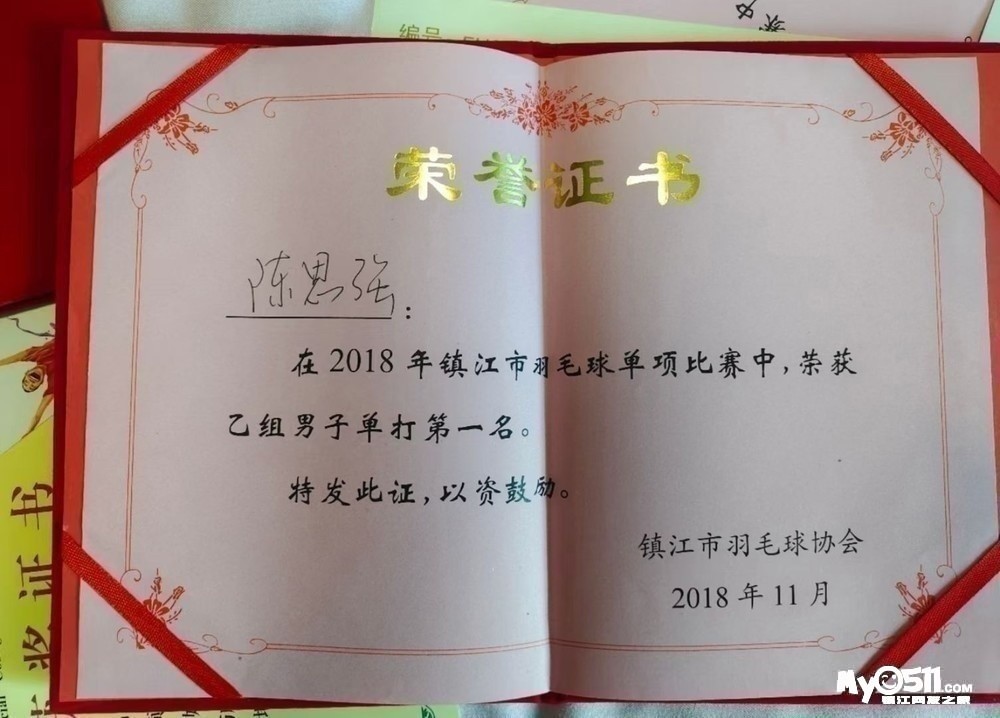 编号
荣誉证书
陈思强：
在2018年镇江市羽毛球单项比赛中，荣获
乙组男子单打第一名。
特发此证，以资鼓励。
镇江市羽毛球协会
2018年11月
奖证书
My0511.com